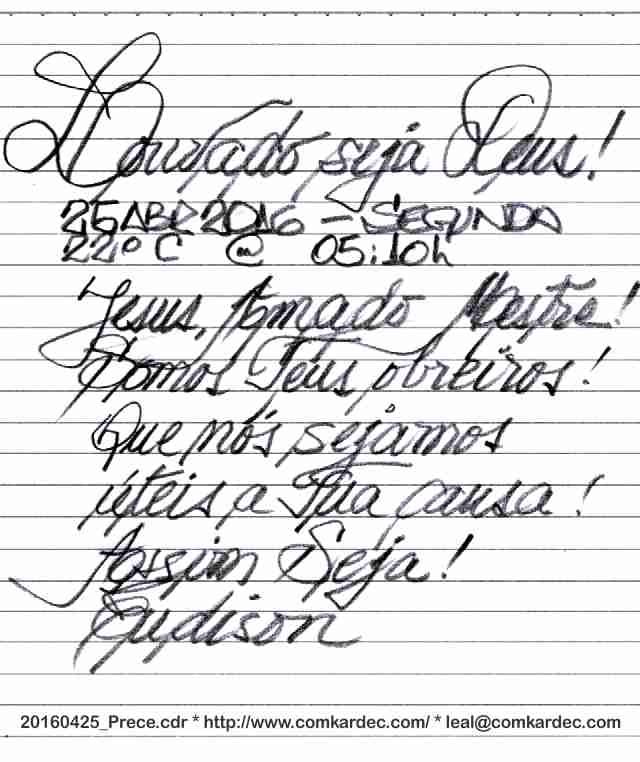 Louvado seja Deus!
25 ABR 2016 - SEGUNDA
22º C @ 05:10h
Jesus, Amado Mestre!
Somos Teus obreiros!
Que nós sejamos
úteis a Tua causa!
Assim Seja!
Eudison
20160425_Prece.cdr * http://www.comkardec.com/ * leal@comkardec.com